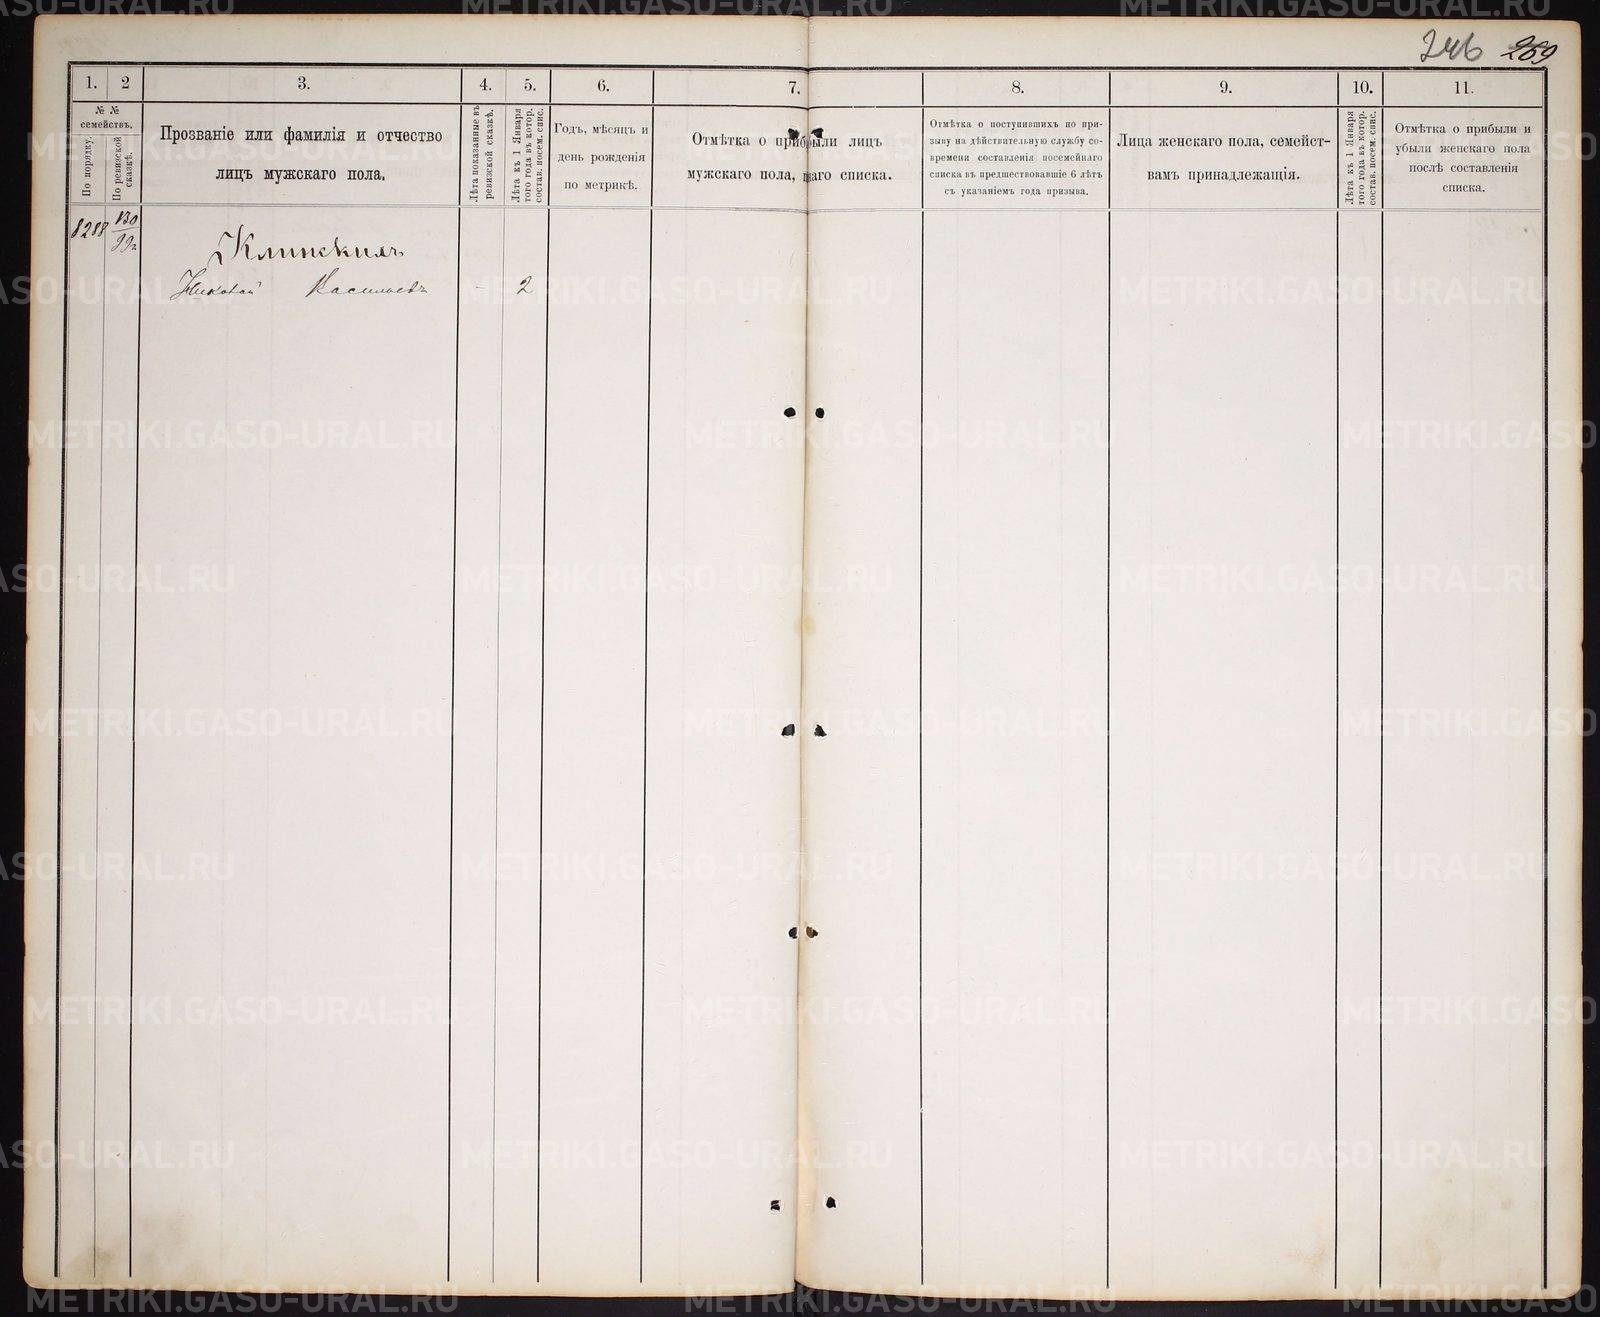 246 269
1. 2 3. 4. 5. 6. 7. 8. 9. 10. 11.
№ №
семействъ.
По порядку.
По ревизской
сказкѣ.
Прозваніе или фамилія и отчество
лицъ мужскаго пола.
Лѣта показанные въ
ревизской сказкѣ.
Лѣта къ 1 Января
того года въ котор.
состав. посем. спис.
Годъ, мѣсяцъ и
день рожденія
по метрикѣ.
Отмѣтка о прибыли лицъ
мужскаго пола, наго списка.
Отмѣтка о поступившихъ по при-
зыву на дѣйствительную службу со-
времени составленія посемейнаго
списка въ предшествовавшіе 6 лѣтъ
съ указаніемъ года призыва.
Лица женскаго пола, семейст-
вамъ принадлежащія.
Лѣта къ 1 Января
того года въ котор.
состав. посем. спис.
Отмѣтка о прибыли и
убыли женскаго пола
послѣ составленія
списка.
8288 130
Николай Васильевъ - 2
METRIKI.GASO-URAL.RU